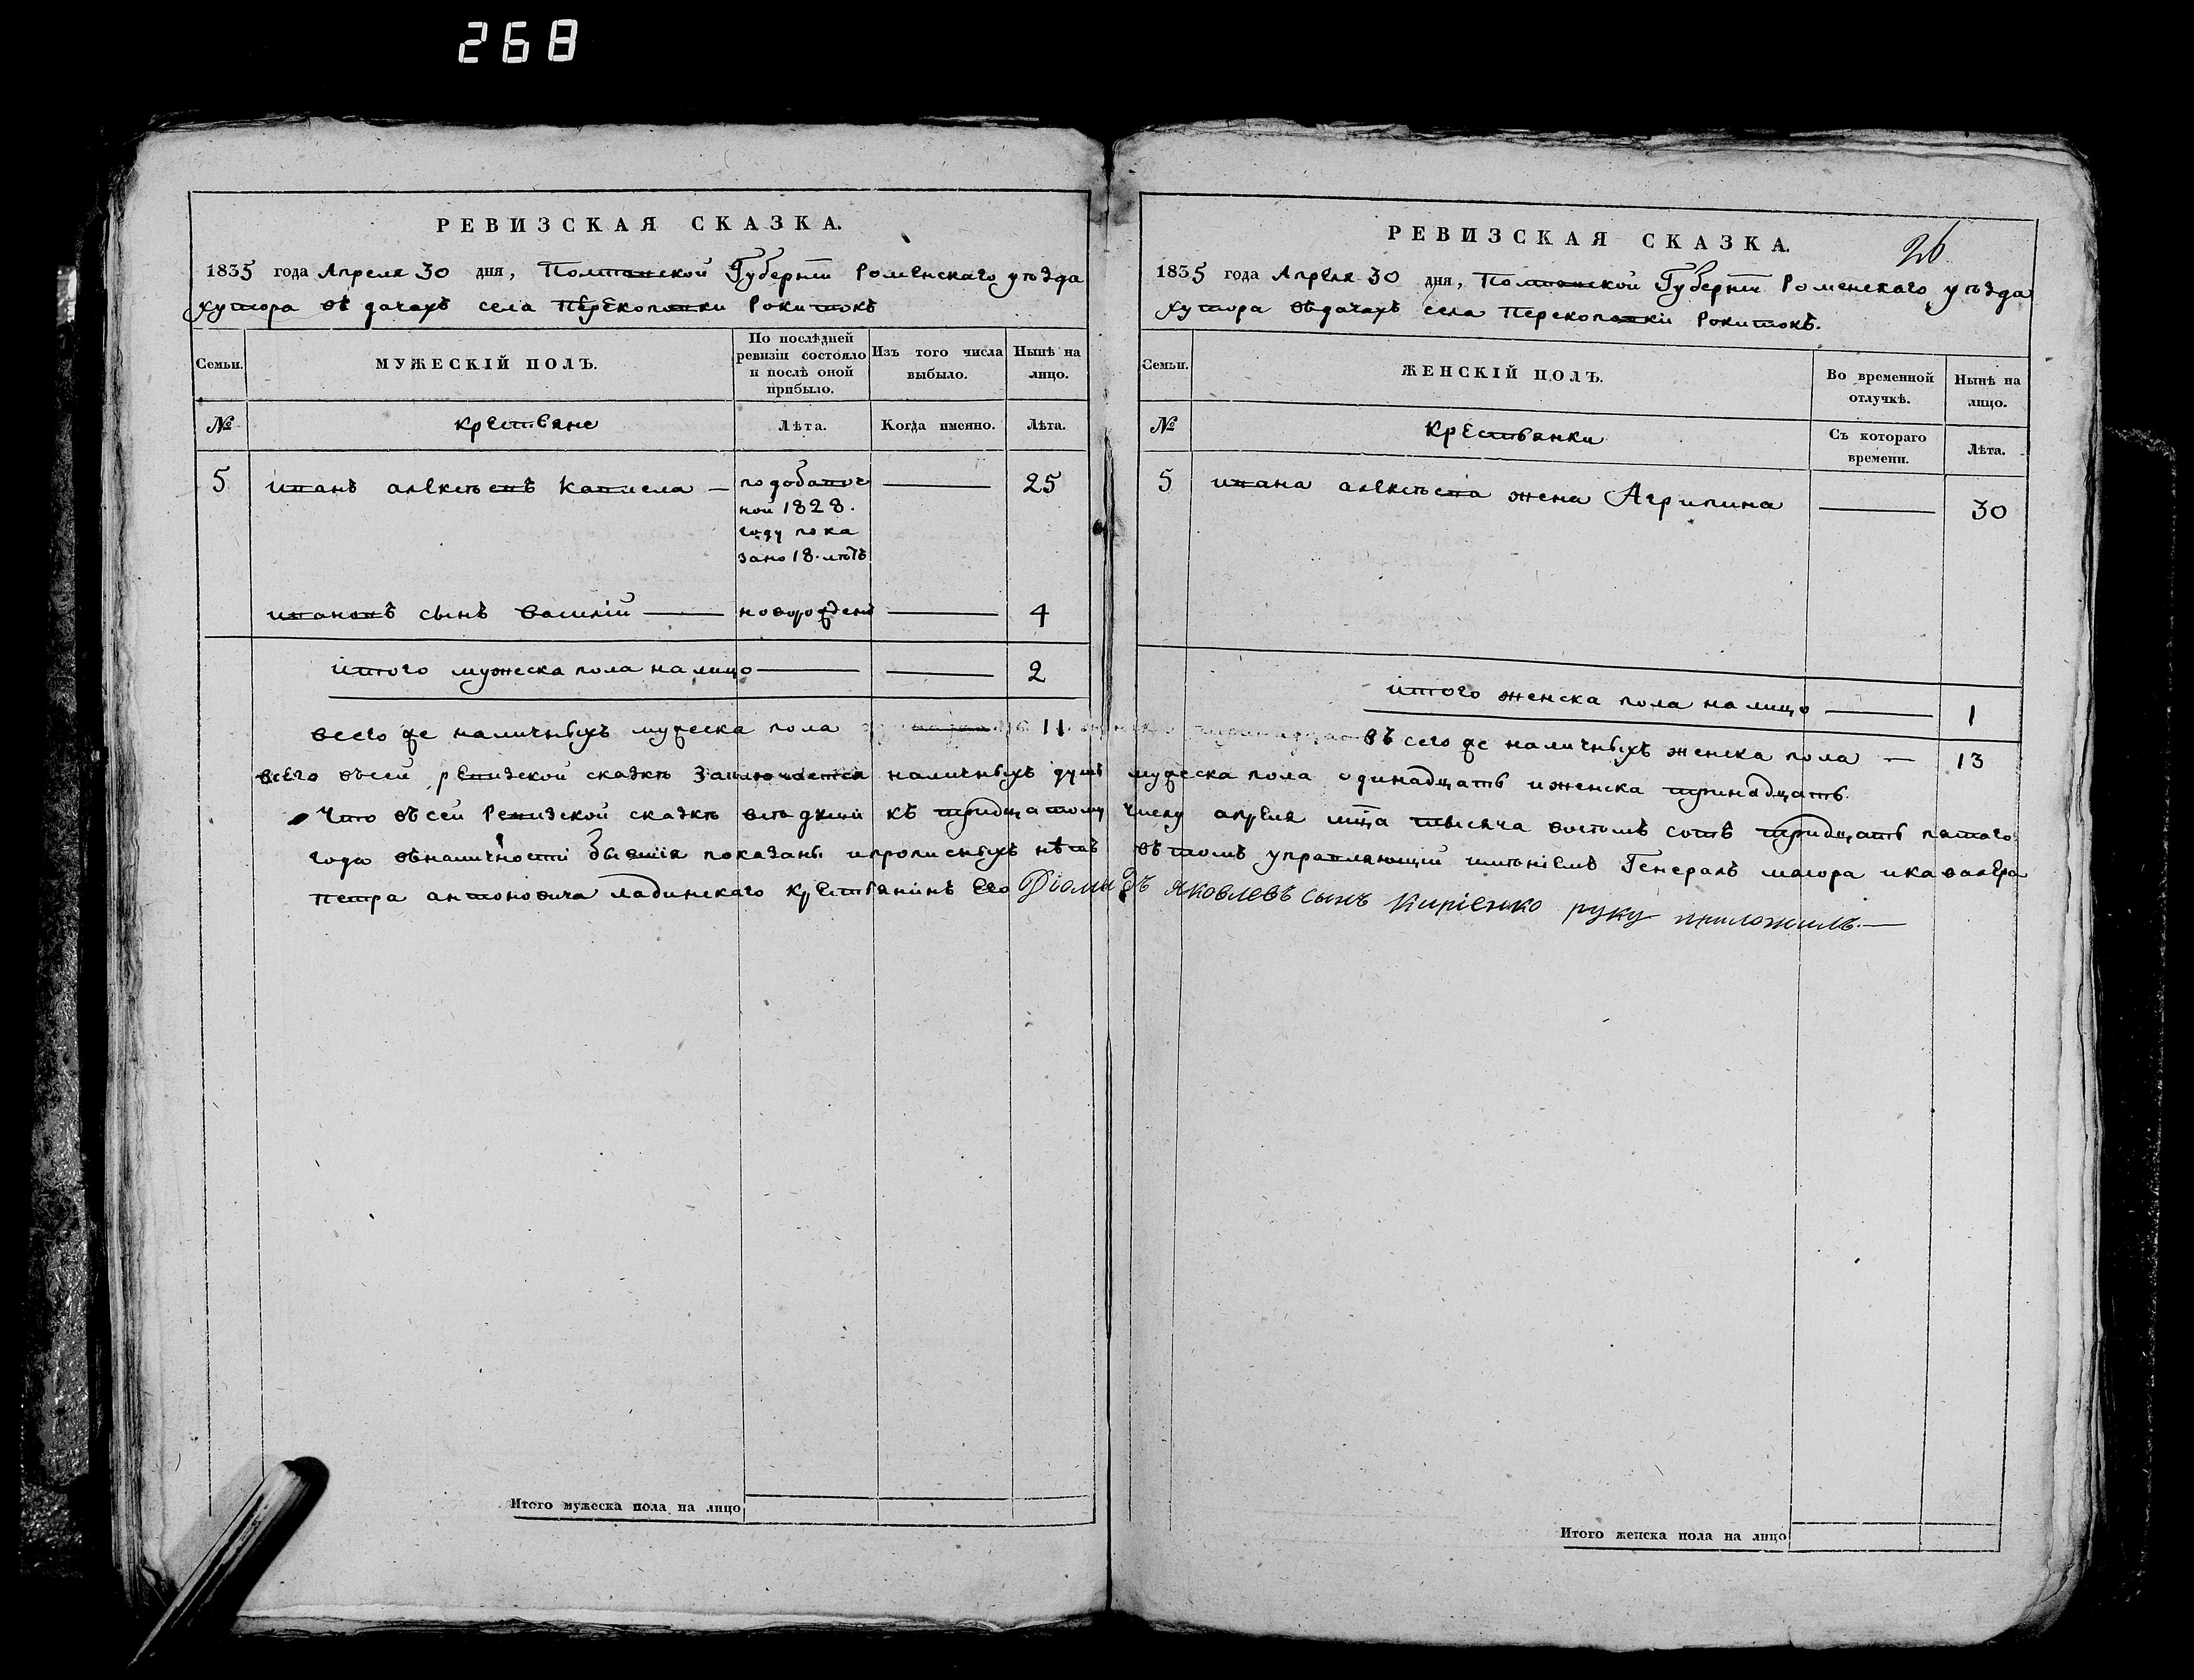 268
РЕВИЗСКАЯ СКАЗКА.
1835 года Апреля 30 дня, Полтавской Губернїи Роменскаго уѣзда
хутора въ дачахъ села Перекоповки Рокитокъ
Семьи.
МУЖЕСКІЙ ПОЛЪ.
По послѣдней ревизіи состояло и послѣ оной прибыло.
Изъ того числа выбыло.
Нынѣ на лицо.
№
крестьяне
Лѣта.
Когда именно.
Лѣта.
5 иванъ алексѣевъ — 25
по добавоч
ной 1828.
году пока
зано 18. лѣтъ
ивановъ сынъ василій — новорожденъ — 4
итого мужеска пола на лицо — 2
всего же наличныхъ мужеска пола 11
РЕВИЗСКАЯ СКАЗКА.
26
1835 года Апреля 30 дня, Полтавской Губернїи Роменскаго уѣзда
хутора въ дачахъ села Перекоповки Рокитокъ.
Семьи.
ЖЕНСКІЙ ПОЛЪ.
Во временной отлучкѣ.
Нынѣ на лицо.
№
крестьянки
Съ котораго времени.
Лѣта.
5 ивана алексѣева жена Агрипина — 30
итого женска пола на лицо — 1
въсего же наличныхъ женска пола — 13
всего въсей ревизской сказкѣ заключается наличныхъ душъ мужеска пола одинадцать иженска тринадцать
Что въсей Ревизской сказкѣ всѣ души къ тридцатому числу апреля мца тысяча восемъ сотъ тридцать пятаго
года вналичности бывшїя показаны ипрописныхъ нѣтъ вътомъ управляющий имѣнїемъ Генералъ маіора икавалера
петра антоновича ладинскаго крестьянинъ его Діомидъ Яковлевъ сынъ Киріенко руку приложилъ.—
Итого мужеска пола на лицо
Итого женска пола на лицо